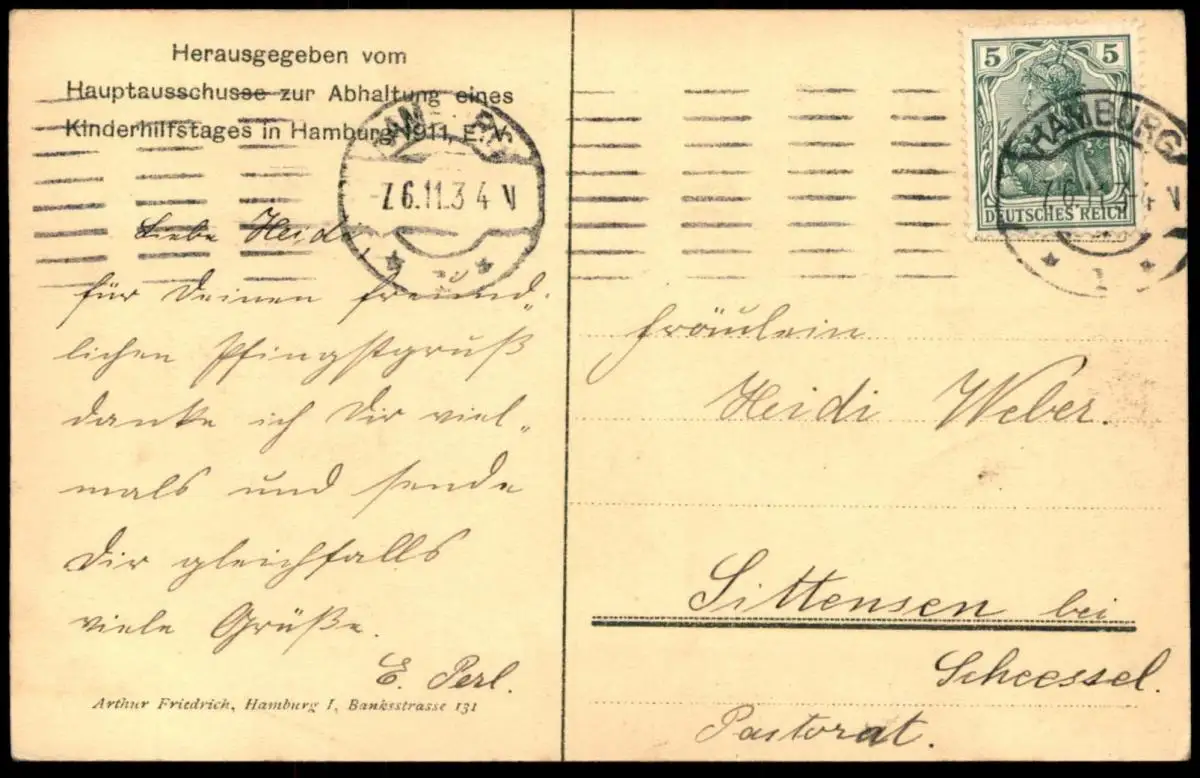 Herausgegeben vom
Hauptausschusse zur Abhaltung eines
Kinderhilfstages in Hamburg 1911, E. V.
HAMBURG
-7.6.11.3-4 V
* 1 *
Liebe Heidi,
für Deinen freund-
lichen Pfingstgruß
danke ich Dir viel-
mals und sende
Dir gleichfalls
viele Grüße.
E. Perl.
Arthur Friedrich, Hamburg I, Banksstrasse 131
5 5
DEUTSCHES REICH
HAMBURG
7.6.11.3-4 V
* 1 *
Fräulein
Heidi Weber.
Sittensen bei
Scheessel.
Pastorat.